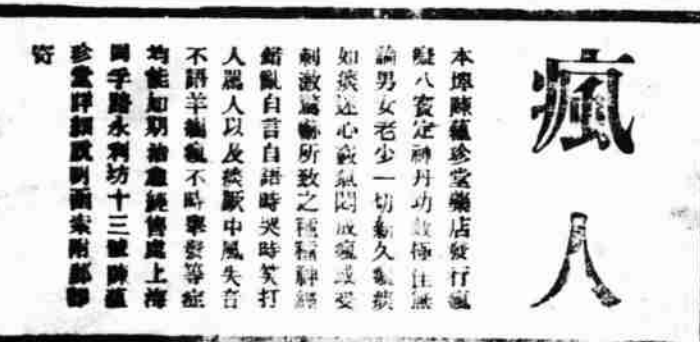 瘋人
本埠陳蘊珍堂藥店發行瘋
癡八寶定神丹功效極佳無
論男女老少一切新久癲痰
如痰迷心竅氣悶成瘋或受
刺激驚嚇所致之種種神經
錯亂自言自語時哭時笑打
人罵人以及痰厥中風失音
不語羊癲瘋不時舉發等症
均能如期治愈經售處上海
同孚路永利坊十三號陳蘊
珍堂詳細說明函索附郵即
寄